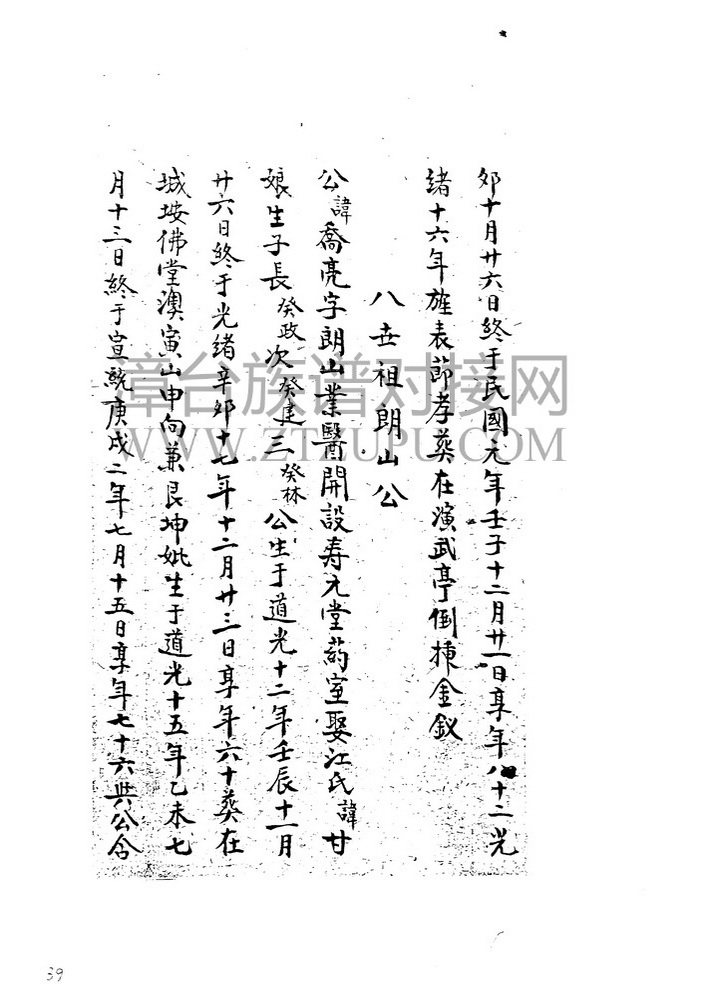 卯十月廿六日終于民國元年壬子十二月廿一日享年八十二光
緒十六年旌表節孝葬在演武亭倒揀金釵
八世祖朗山公
公諱喬亮字朗山業醫開設寿元堂药室娶江氏諱甘
娘生子長癸政次癸建三癸林公生于道光十二年壬辰十一月
廿六日終于光緒辛卯十七年十二月廿三日享年六十葬在
城垵佛堂澳寅山申向兼艮坤妣生于道光十五年乙未七
月十三日終于宣統庚戌二年七月十五日享年七十六與公合
漳台族谱对接网
WWW.ZTZUPU.COM
39